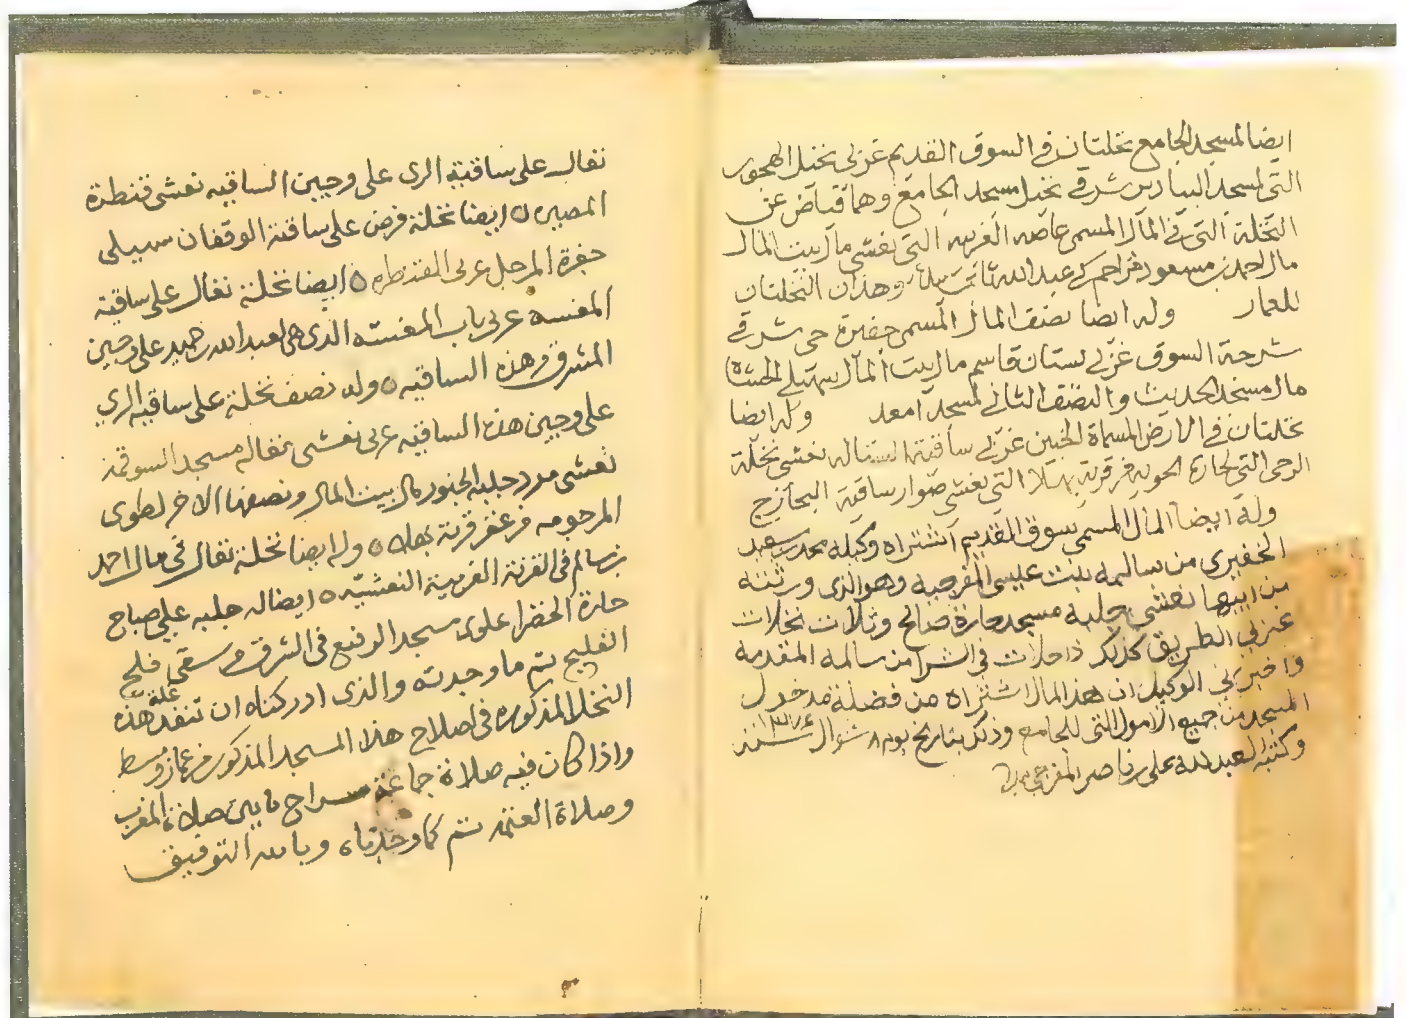 ايضا لمسجد الجامع نخلتان في السوق القديم غربي نخيل الهجور
التي لمسجد شرقي نخيل مسجد الجامع وهما قياض عن
النخلة التي في المال المسمى عاضد الغربيه التي تعشي مال بيت المال
مال احمد بن مسعود عبدالله وهذان النخلتان
للعمار وله ايضا نصف المال المسمى حفيرة حي شرقي
شرجة السوق غربي بستان قاسم مال بيت المال سهيلي
مال مسجد الحديث والنصف الثاني لمسجد وله ايضا
نخلتان في الارض المسماة غربي ساقية تعشي نخلة
الرحى التي لحارة من قرية بهلا التي تعشي صوار ساقية
وله ايضا المال المسمى سوق القديم اشتراه وكيله محمد بن سعيد
من سالمه بنت عيسى المفرجيه وهو الذي ورثته
من ابيها تعشي جلبة مسجد حارة صالح وثلاث نخلات
غربي الطريق كذلك داخلات في الشرا من سالمه المقدمة
واخبرني الوكيل ان هذ المال اشتراه من فضلة مدخول
المسجد من جميع الامول التي للجامع وذلك بتاريخ يوم ٨ شوال سنة
وكتبه العبد لله علي بن ناصر المفرجي بيده
نغال على ساقية الري على وجين الساقيه تعشي قنطرة
ايضا نخلة فرض على ساقية الوقفان سهيلي
حفرة المرجل غربي القنطره ايضا نخلة نغال على ساقية
المغسة غربي باب الذي هي لعبدالله بن حميد على وجين
المشرقي من هذه الساقيه وله نصف نخلة على ساقية الري
على وجين هذه الساقيه غربي تعشي نغاله مسجد السوقمة
تعشي جلبة الجنور مال بيت المال ونصفها الاخر لطوى
المرجومه من عقر قرية بهلا وله ايضا نخلة نغال في مال احمد
بن سالم في القرنة الغربية النعشيه ايضا له جلبه علي صباح
حارة الخضرا علوى مسجد الرفيع في الشرقي من سقي فلج
الفليج تم ما وجدته والذي ادركناه ان تنفد غلة هذه
النخل المذكوره في اصلاح هذا المسجد المذكور من عمار
واذا كان فيه صلاة جماعة سراج ما بين صلاة المغرب
وصلاة العتمه تم كما وجدناه وبالله التوفيق